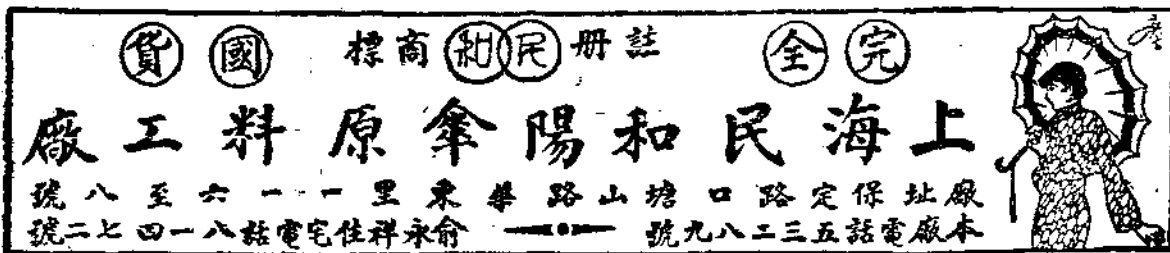 完全 註冊民和商標 國貨
上海民和陽傘原料工廠
廠址保定路口塘山路華東里一一一六至八號
本廠電話五三二八九號 俞永祥住宅電話八一四七二號